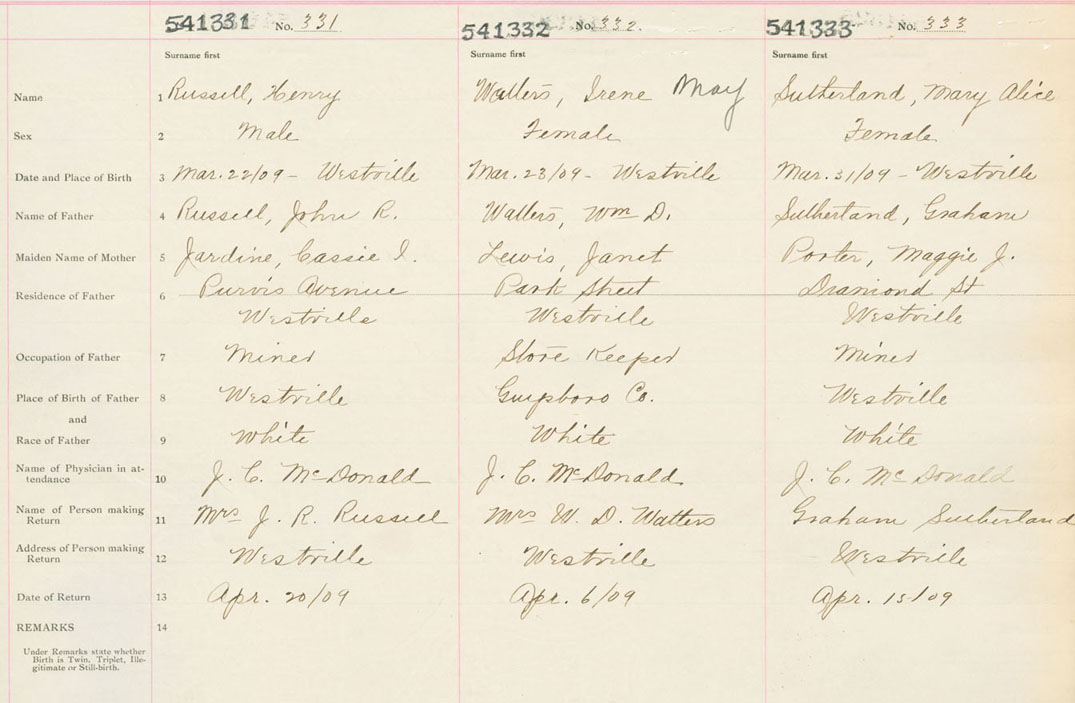 541331 No. 331 541332 No. 332. 541333 No. 333
Surname first Surname first Surname first
Name 1 Russell, Henry Watters, Irene May Sutherland, Mary Alice
Sex 2 Male Female Female
Date and Place of Birth 3 Mar. 22/09 - Westville Mar. 23/09 - Westville Mar. 31/09 - Westville
Name of Father 4 Russell, John R. Watters, Wm D. Sutherland, Graham
Maiden Name of Mother 5 Jardine, Cassie I. Lewis, Janet Porter, Maggie J.
Residence of Father 6 Purvis Avenue Park Street Diamond St
Westville Westville Westville
Occupation of Father 7 Miner Store Keeper Miner
Place of Birth of Father 8 Westville Guysboro Co. Westville
and
Race of Father 9 White White White
Name of Physician in at-
tendance 10 J. C. McDonald J. C. McDonald J. C. McDonald
Name of Person making
Return 11 Mrs J. R. Russell Mrs W. D. Watters Graham Sutherland
Address of Person making
Return 12 Westville Westville Westville
Date of Return 13 Apr. 20/09 Apr. 6/09 Apr. 15/09
REMARKS 14
Under Remarks state whether
Birth is Twin, Triplet, Ille-
gitimate or Still-birth.